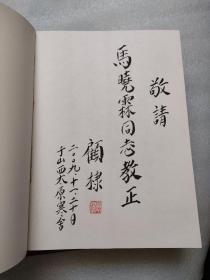 敬請
馬曉霖同志教正
顧棣
二〇〇九·十一·二十日
于山西太原寒舍